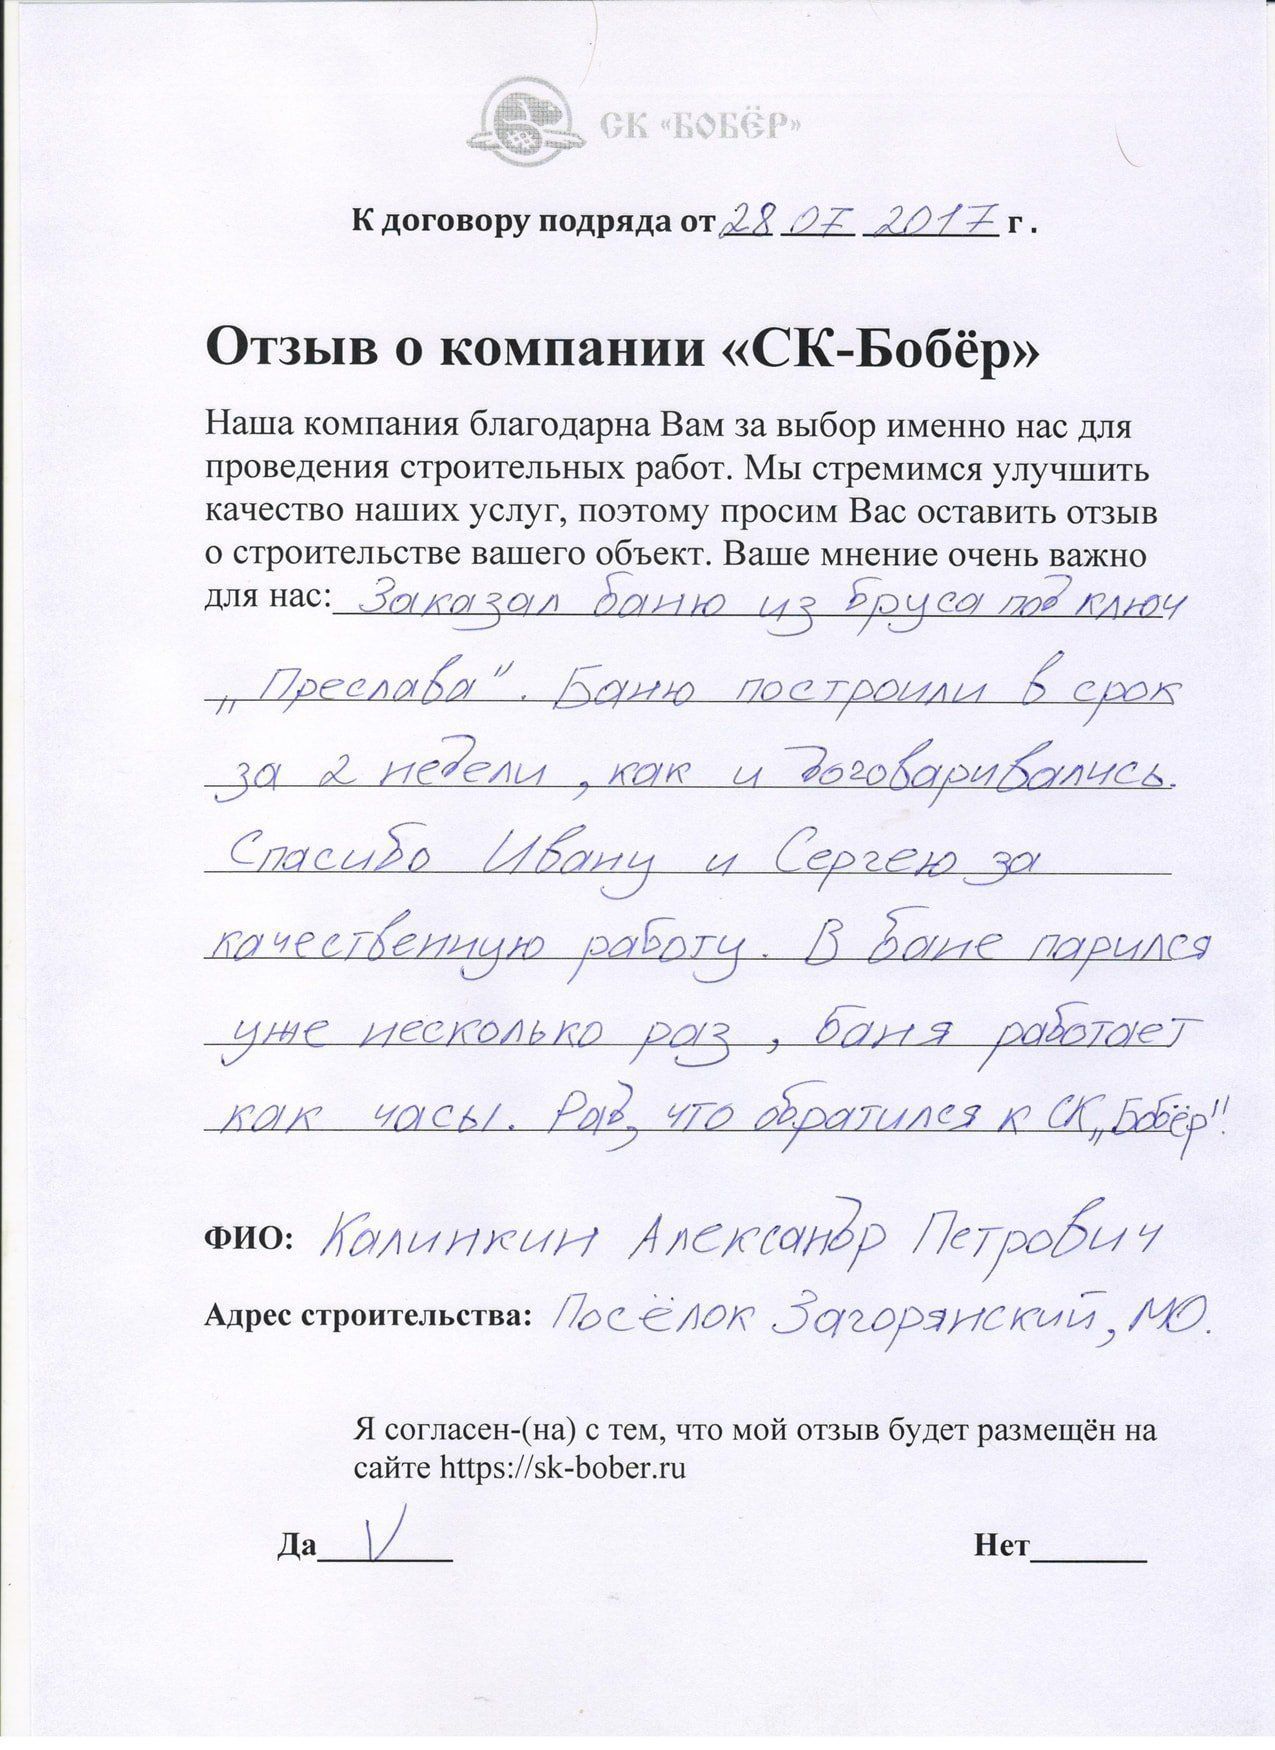 СК «БОБЁР»
К договору подряда от 28 07 2017 г .
Отзыв о компании «СК-Бобёр»
Наша компания благодарна Вам за выбор именно нас для
проведения строительных работ. Мы стремимся улучшить
качество наших услуг, поэтому просим Вас оставить отзыв
о строительстве вашего объект. Ваше мнение очень важно
для нас: Заказал баню из бруса под ключ
„Преслава". Баню построили в срок
за 2 недели, как и договаривались.
Спасибо Ивану и Сергею за
качественную работу. В бане парился
уже несколько раз, баня работает
как часы. Рад, что обратился к СК„Бобёр"!
ФИО: Калинкин Александр Петрович
Адрес строительства: Посёлок Загорянский, МО.
Я согласен-(на) с тем, что мой отзыв будет размещён на
сайте https://sk-bober.ru
Да V Нет